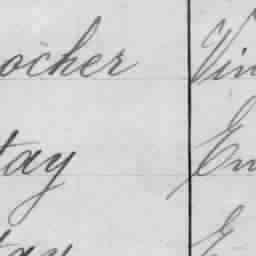 ocher Vin
tay En
tay E